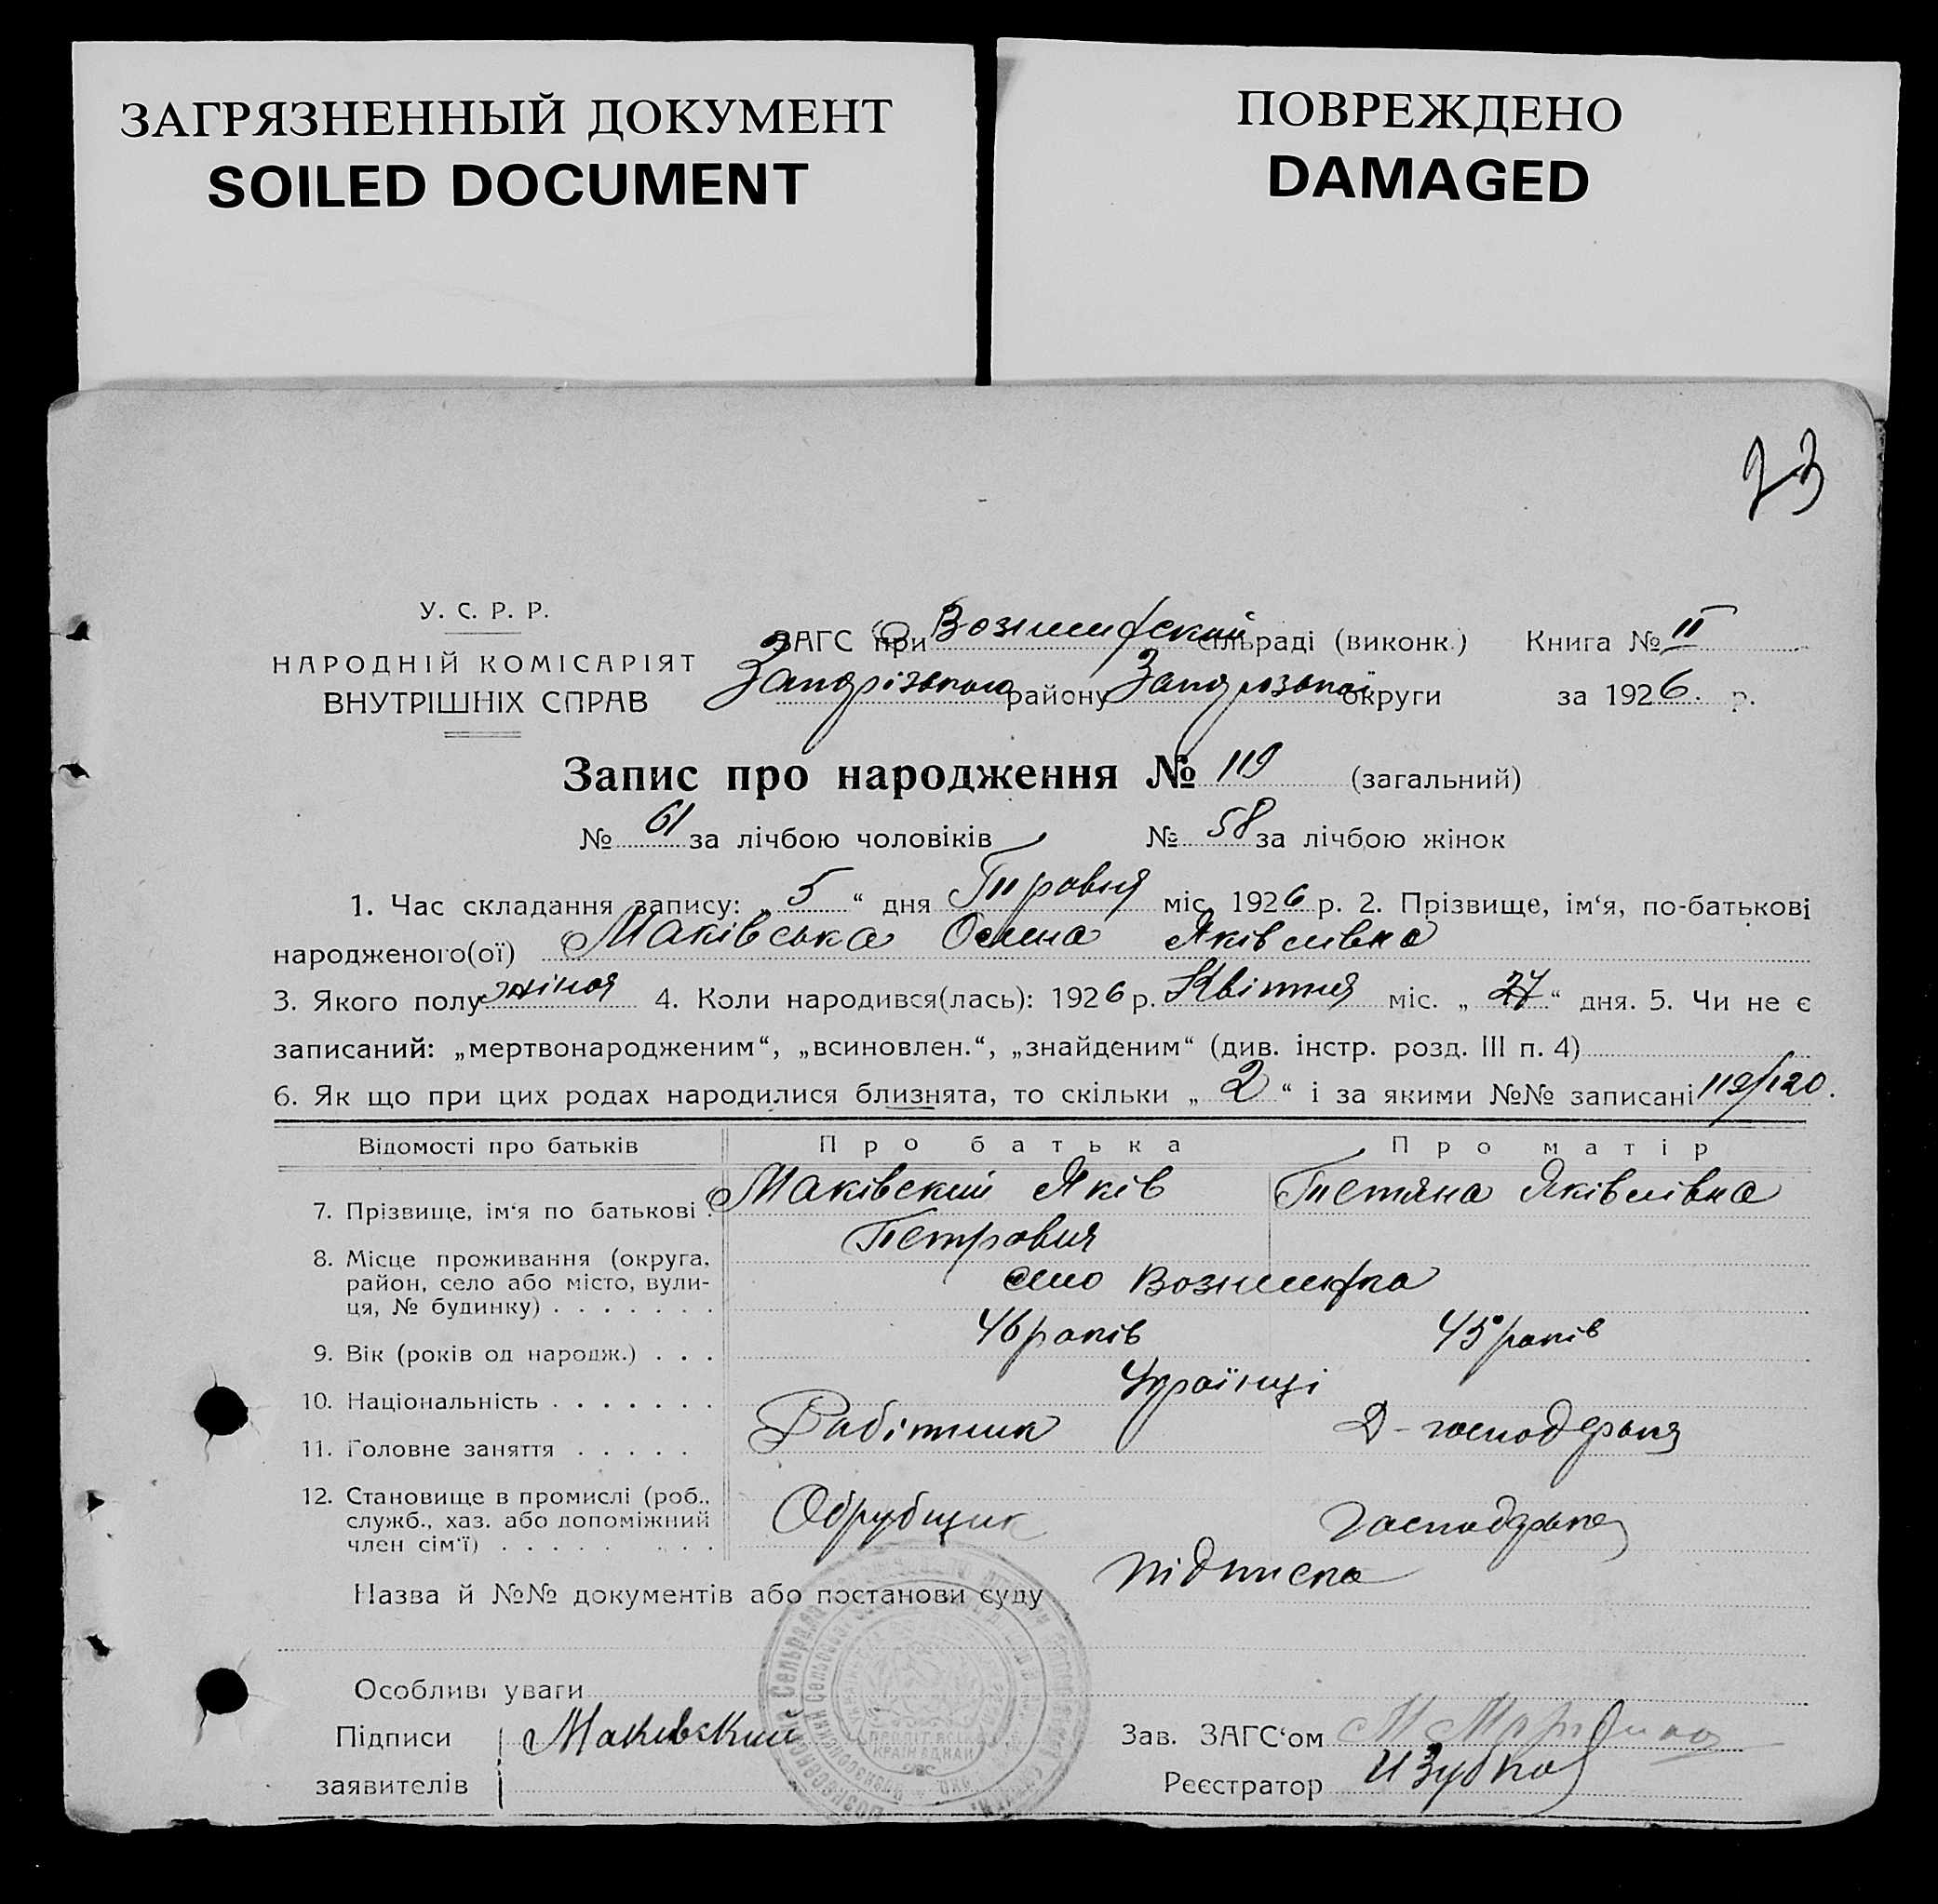 ЗАГРЯЗНЕННЫЙ ДОКУМЕНТ
SOILED DOCUMENT
ПОВРЕЖДЕНО
DAMAGED
23
У. С. Р. Р.
НАРОДНІЙ КОМІСАРІЯТ
ВНУТРІШНІХ СПРАВ
ЗАГС при сільраді (виконк.) Книга № II
району округи за 1926. р.
Запис про народження № 119 (загальний)
№ 61 за лічбою чоловіків № 58 за лічбою жінок
1. Час складання запису: „ 5 “ дня Травня міс. 1926 р. 2. Прізвище, ім‘я, по-батькові
народженого(ої) Маківська Олена Яківлівна
3. Якого полу жіноч 4. Коли народився(лась): 1926 р. Квітня міс. „ 27 “ дня. 5. Чи не є
записаний: „мертвонародженим“, „всиновлен.“, „знайденим“ (див. інстр. розд. III п. 4)
6. Як що при цих родах народилися близнята, то скільки „ 2 “ і за якими №№ записані 119/120.
Відомості про батьків Про батька Про матір
7. Прізвище, ім‘я по батькові . Маківский Яків Тетяна Яківлівна
Петрович
8. Місце проживання (округа,
район, село або місто, вули-
ця, № будинку) . . . . . . . село
9. Вік (років од народж.) . . . 46 років 45 років
10. Національність . . . . . . . Українці
11. Головне заняття . . . . . Робітник Д-господарька
12. Становище в промислі (роб.,
служб., хаз. або допоміжний
член сім‘ї) . . . . . . . . Обрубщик господарька
Назва й №№ документів або постанови суду підписка
Особливі уваги
Підписи
заявителів
Маківский
Зав. ЗАГС‘ом
Реєстратор И Зубков